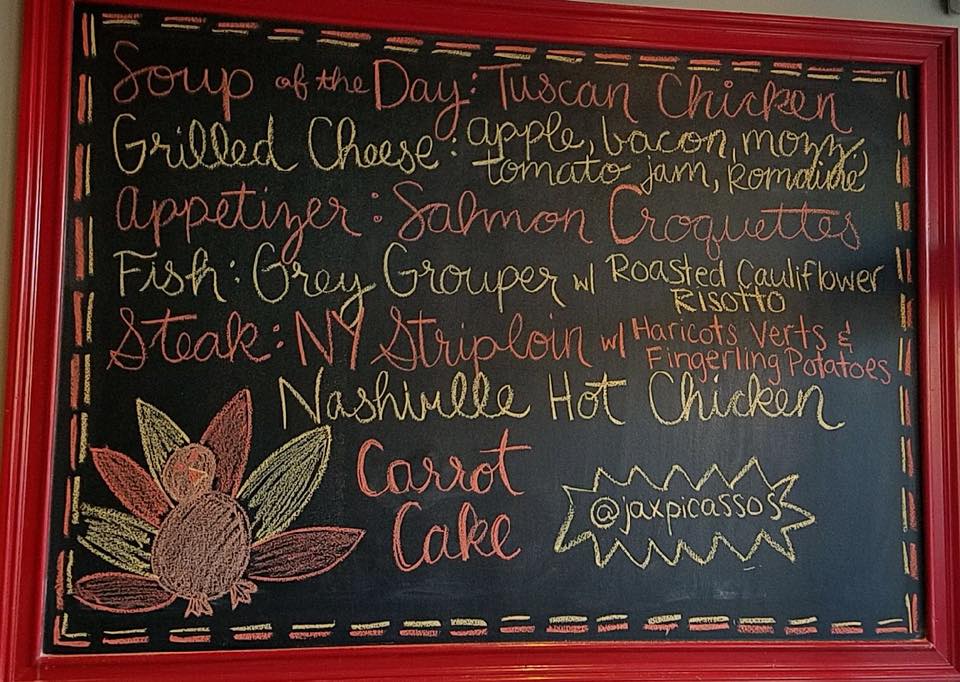 Soup of the Day: Tuscan Chicken
Grilled Cheese: apple, bacon, mozz,
tomato jam, Romaine
Appetizer: Salmon Croquettes
Fish: Grey Grouper w/ Roasted Cauliflower
Risotto
Steak: NY Striploin w/ Haricots Verts &
Fingerling Potatoes
Nashville Hot Chicken
Carrot
Cake
@jaxpicassos